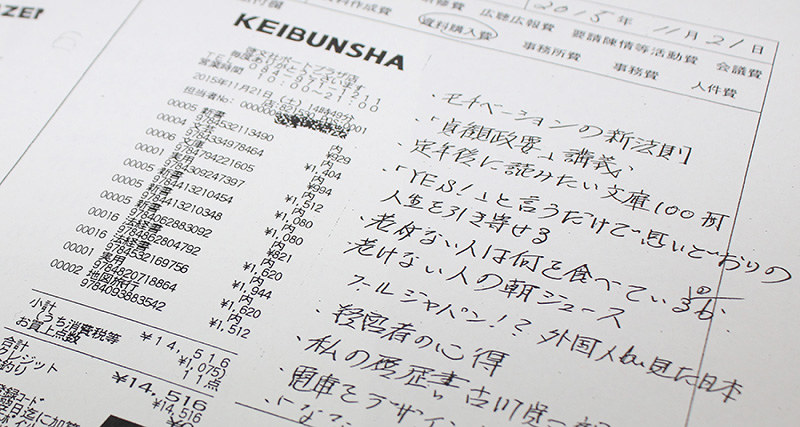 2015年11月21日
資料作成費
広聴広報費
要請陳情等活動費
会議費
資料購入費
事務所費
事務費
人件費
KEIBUNSHA
啓文社ポートプラザ店
毎度ありがとうございます
営業時間 10:00-21:00
2015年11月21日(土) 14時49分
担当者No:
00005 新書 内
9784532113490 ¥929
00004 文芸 内
9784334978464 ¥1,404
00006 文庫 内
9784794221605 ¥994
00001 実用 内
9784309247397 ¥1,512
00005 新書 内
9784413210454 ¥1,080
00005 新書 内
9784413210348 ¥1,080
00005 新書 内
9784062883092 ¥821
00016 法経書 内
9784862804792 ¥1,620
00016 法経書 内
9784532169756 ¥1,944
00001 実用 内
9784820718864 ¥1,620
00002 地図旅行 内
9784093883542 ¥1,512
小計 ¥14,516
(うち消費税等 ¥1,075)
お買上点数 11点
合計 ¥14,516
クレジット ¥14,516
お釣り ¥0
・モチベーションの新法則
・「貞観政要」講義
・定年後に読みたい文庫100冊
・「YES!」と言うだけで思いどおりの
人生を引き寄せる
・老けない人は何を食べているか
・老けない人の朝ジュース
クールジャパン!? 外国人が見た日本
・経営者の心得
・私の履歴書